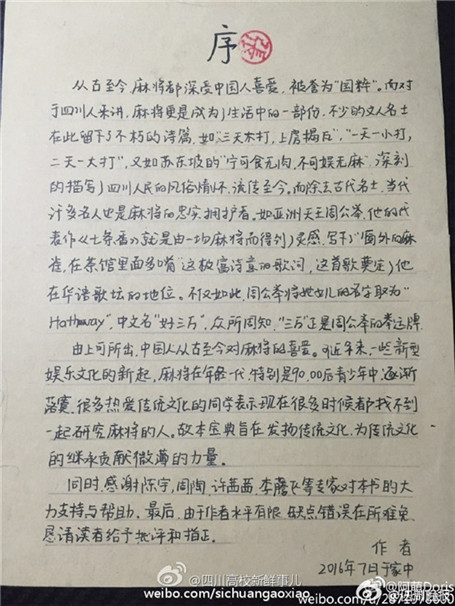 序
从古至今麻将都深受中国人喜爱，被誉为"国粹"。而对于
于四川人来讲，麻将更是成为了生活中的一部份，不少的文人名士
在此留下了不朽的诗篇，如"三天不打，上房揭瓦"，"一天一小打，
二天一大打"，又如苏东坡的"宁可食无肉，不可娱无麻"，深刻
的描写了四川人民的风俗情怀，流传至今。而除去古代名士，当代
许多名人也是麻将的忠实拥护者。如亚洲天王周公举，他的代
表作《七条香》就是由一场麻将而得到了灵感，写下了"窗外的麻
雀，在茶馆里面多嘴"这极富诗意的歌词，这首歌奠定了他
在华语歌坛的地位。不仅如此，周公举将她女儿的名字取为"
Hathaway"，中文名"好三万"，众所周知，"三万"正是周公举的幸运牌。
由上可所出，中国人从古至今对麻将的喜爱。可近年来，一些新型
娱乐文化的新起，麻将在年轻一代，特别是90，00后青少年中，逐渐
落寞，很多热爱传统文化的同学表示现在很多时候都找不到
一起研究麻将的人。故本宝典旨在发扬传统文化，为传统文化
的继承贡献微薄的力量。
同时，感谢陈宇，周陶，许茜茜，李等专家对本书的大
力支持与帮助。最后，由于作者水平有限，缺点错误在所难免，
恳请读者给予批评和指正。
作者
2016年7日于家中
@四川高校新鲜事儿
weibo.com/sichuangaoxiao
@阿萌Doris